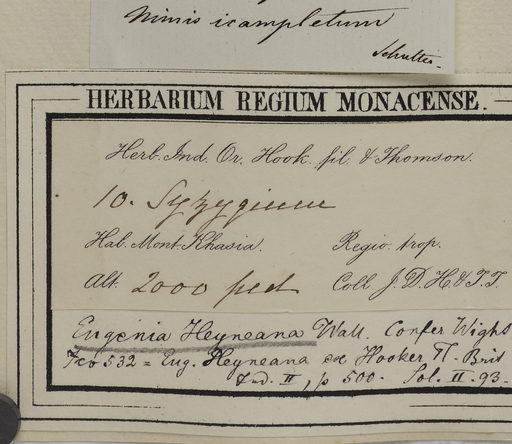 Nimis icampletum
Schultes.
HERBARIUM REGIUM MONACENSE.
Herb. Ind. Or. Hook. fil. & Thomson.
10. Syzygium
Hab. Mont. Khasia. Regio. trop.
Alt. 2000 ped Coll. J. D. H. & T. T.
Eugenia Heyneana Wall. Confer Wight
Ico 532 = Eug. Heyneana ex Hooker Fl. Brit
Ind. II, p 500. Sol. II. 93.